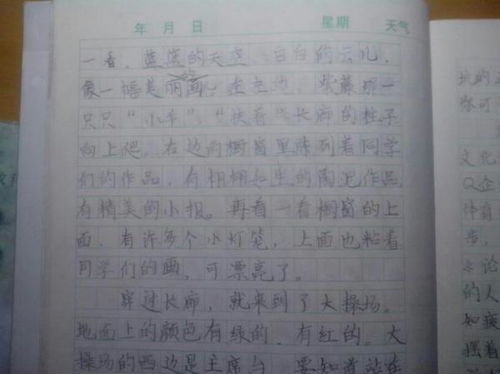 年 月 日 星期 天气
一看,蓝蓝的天空、白白的云儿,
像一幅美丽画。左边,紫藤那一
只只“小车”,“扶着”长廊的柱子
向上爬,右边的橱窗里陈列着同学
们的作品,有栩栩如生的陶泥作品,
有精美的小报。再看一看橱窗的上
面,有许多个小灯笼,上面也粘着
同学们的画,可漂亮了。
穿过长廊,就来到了大操场。
地面上的颜色有绿的,有红的。大
操场的西边是主席台,要知道站在
文化
Q企
的人